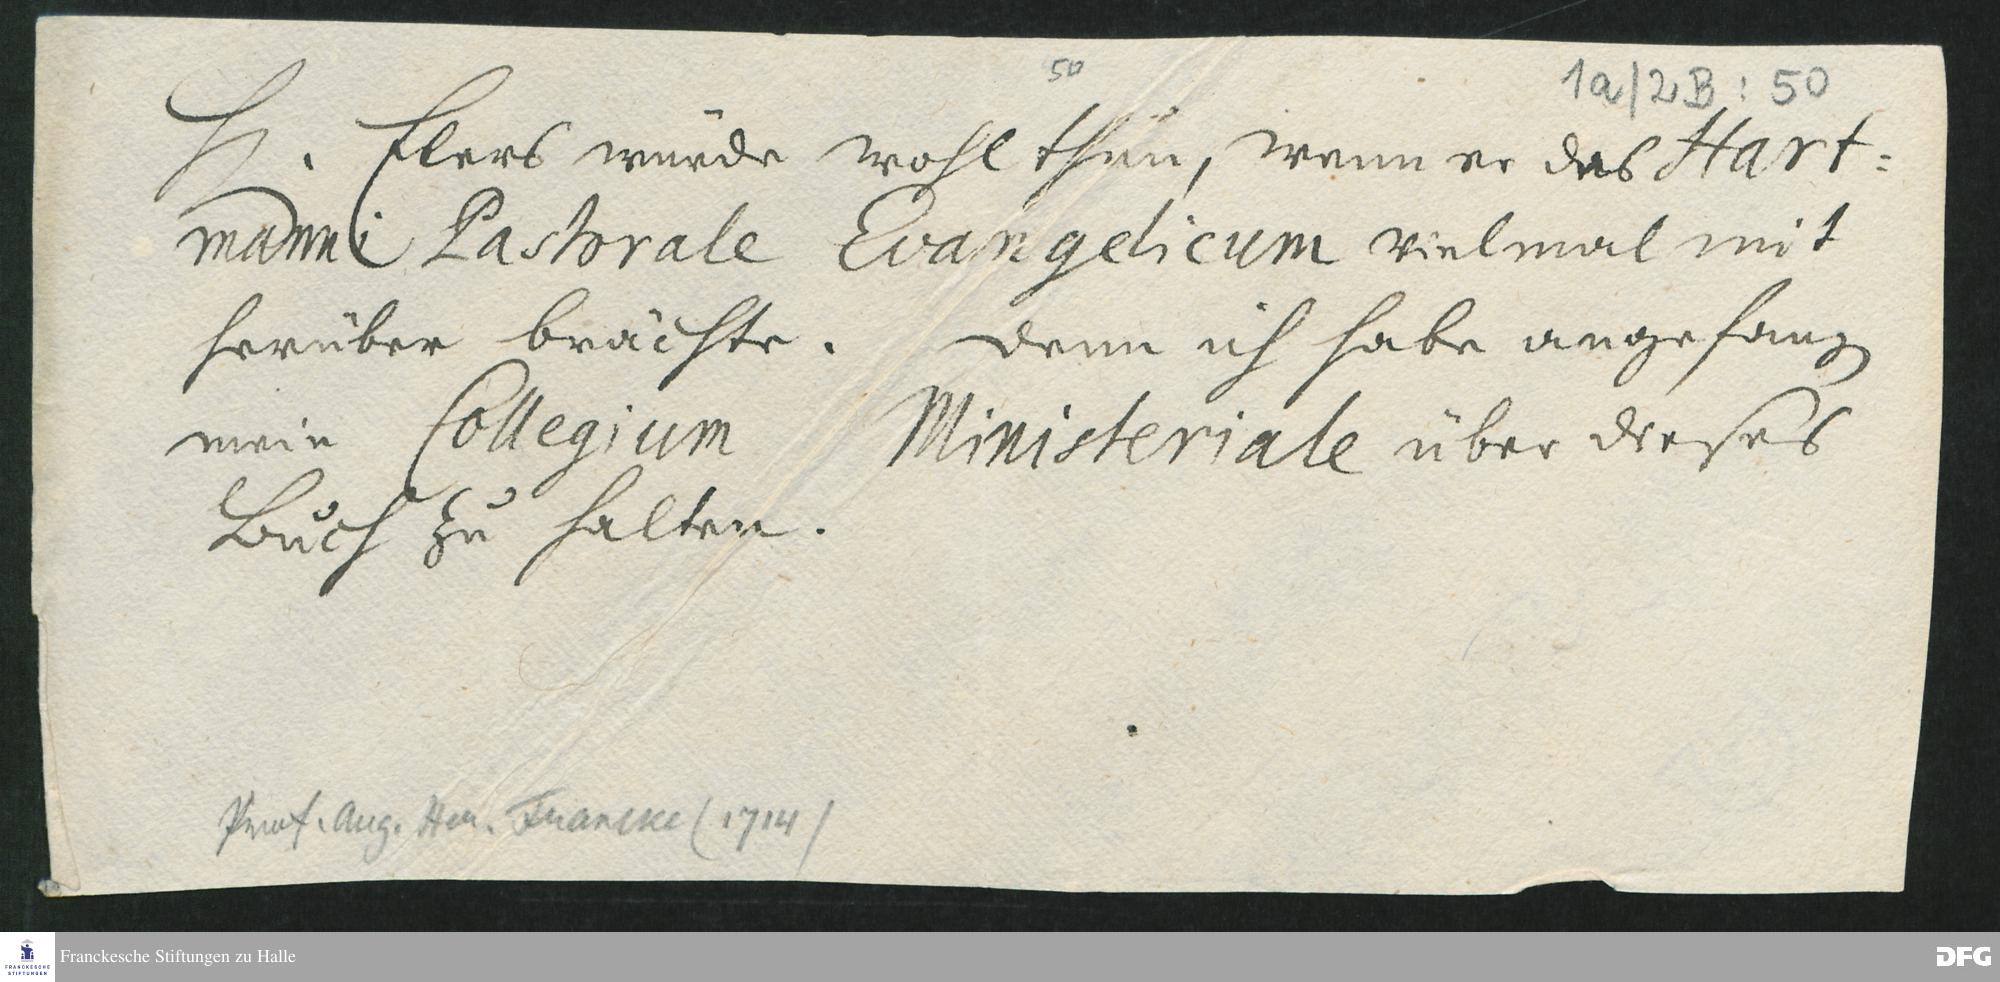 50
1a/2B: 50
H. Elers würde wohl thun, wenn er das Hart=
manni Pastorale Evangelicum vielmal mit
herüber brächte. Denn ich habe angefang
mein Collegium Ministeriale über dieses
Buch zu halten.
Prof. Aug. Her. Francke (1714)
FRANCKESCHE
STIFTUNGEN
Franckesche Stiftungen zu Halle
DFG